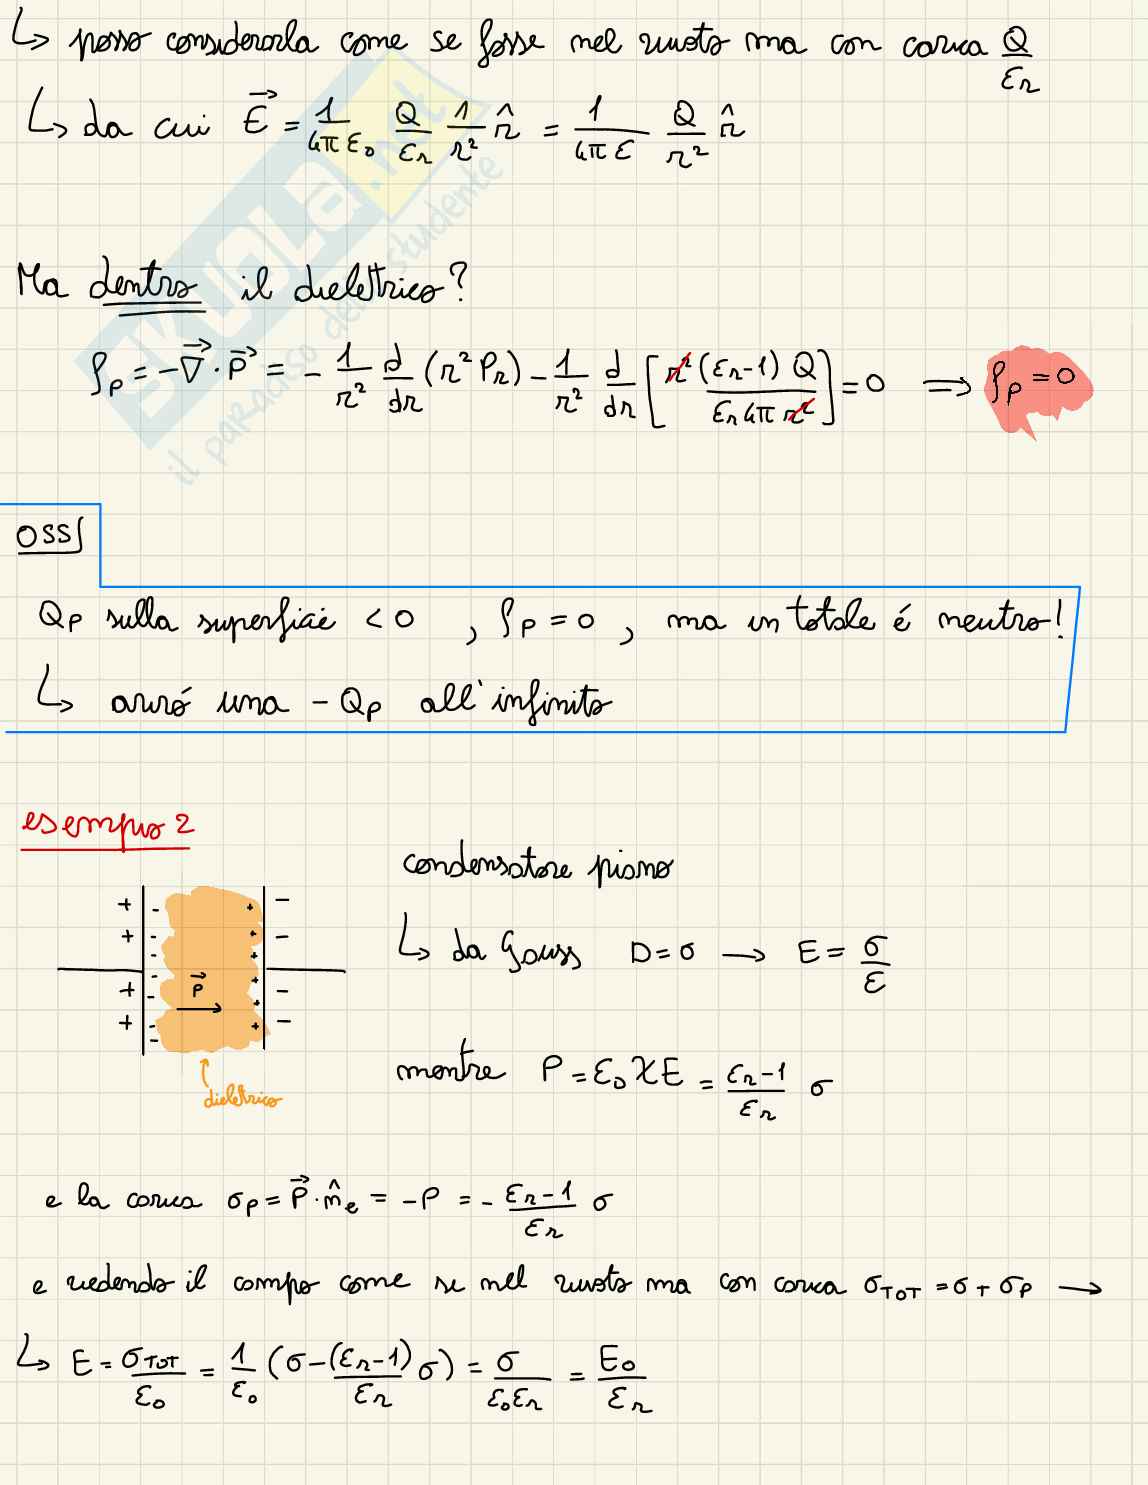 ↳ posso considerarla come se fosse nel vuoto ma con carica Q/εr
↳ da cui E⃗ = 1/(4πε₀) Q/εr 1/r² r̂ = 1/(4πε) Q/r² r̂
Ma dentro il dielettrico?
ρp = -∇⃗·P⃗ = - 1/r² d/dr (r² Pr) - 1/r² d/dr [r² (εr-1) Q / (εr 4π r²)] = 0 ⟹ ρp = 0
OSS
Qp sulla superficie < 0 , ρp = 0 , ma in totale é neutro!
↳ avró una - Qp all'infinito
esempio 2
condensatore piano
+ - + -
+ - + -
↳ da Gauss D = σ → E = σ/ε
P⃗
+ - + -
+ - + -
mentre P = ε₀ χ E = (εr-1)/εr σ
dielettrico
e la carica σp = P⃗·n̂e = -P = - (εr-1)/εr σ
e vedendo il campo come se nel vuoto ma con carica σTOT = σ + σp →
↳ E = σTOT/ε₀ = 1/ε₀ (σ - (εr-1)/εr σ) = σ/(ε₀εr) = E₀/εr
SKUOLA.net
il paradiso dello studente